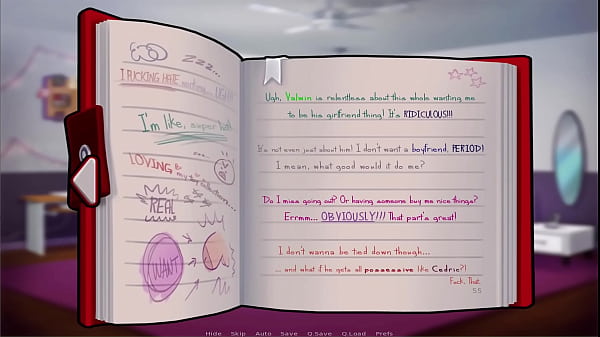 ZZZ...
I FUCKING HATE
I'm like, super
LOVING
my
REAL
WANT
Ugh, Valwin is relentless about this whole wanting me
to be his girlfriend thing! It's RIDICULOUS!!!
It's not even just about him! I don't want a boyfriend, PERIOD!
I mean, what good would it do me?
Do I miss going out? Or having someone buy me nice things?
Errmm... OBVIOUSLY!!! That part's great!
I don't wanna be tied down though...
... and what if he gets all possessive like Cedric?!
Fuck. That.
55
Hide Skip Auto Save Q.Save Q.Load Prefs